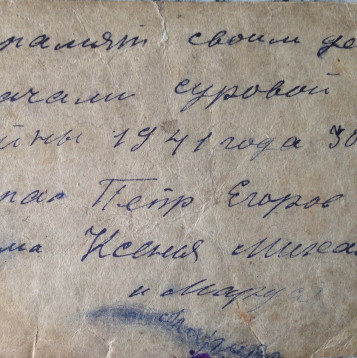 памят своим де
начали суровой
йны 1941 года 30
папа Пётр Егоров
ма Ксения Миха
и Маруся